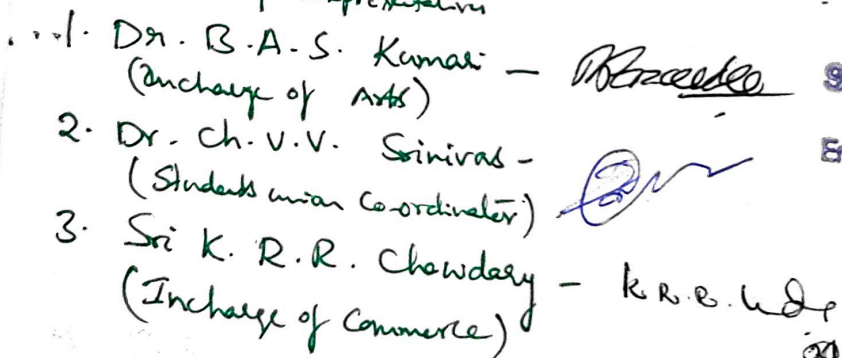 1. Dr. B.A.S. Kumari -
(Incharge of Arts)
2. Dr. Ch. V.V. Srinivas -
(Students union Co-ordinator)
3. Sri K. R. R. Chowdary - K.R.R.
(Incharge of Commerce)